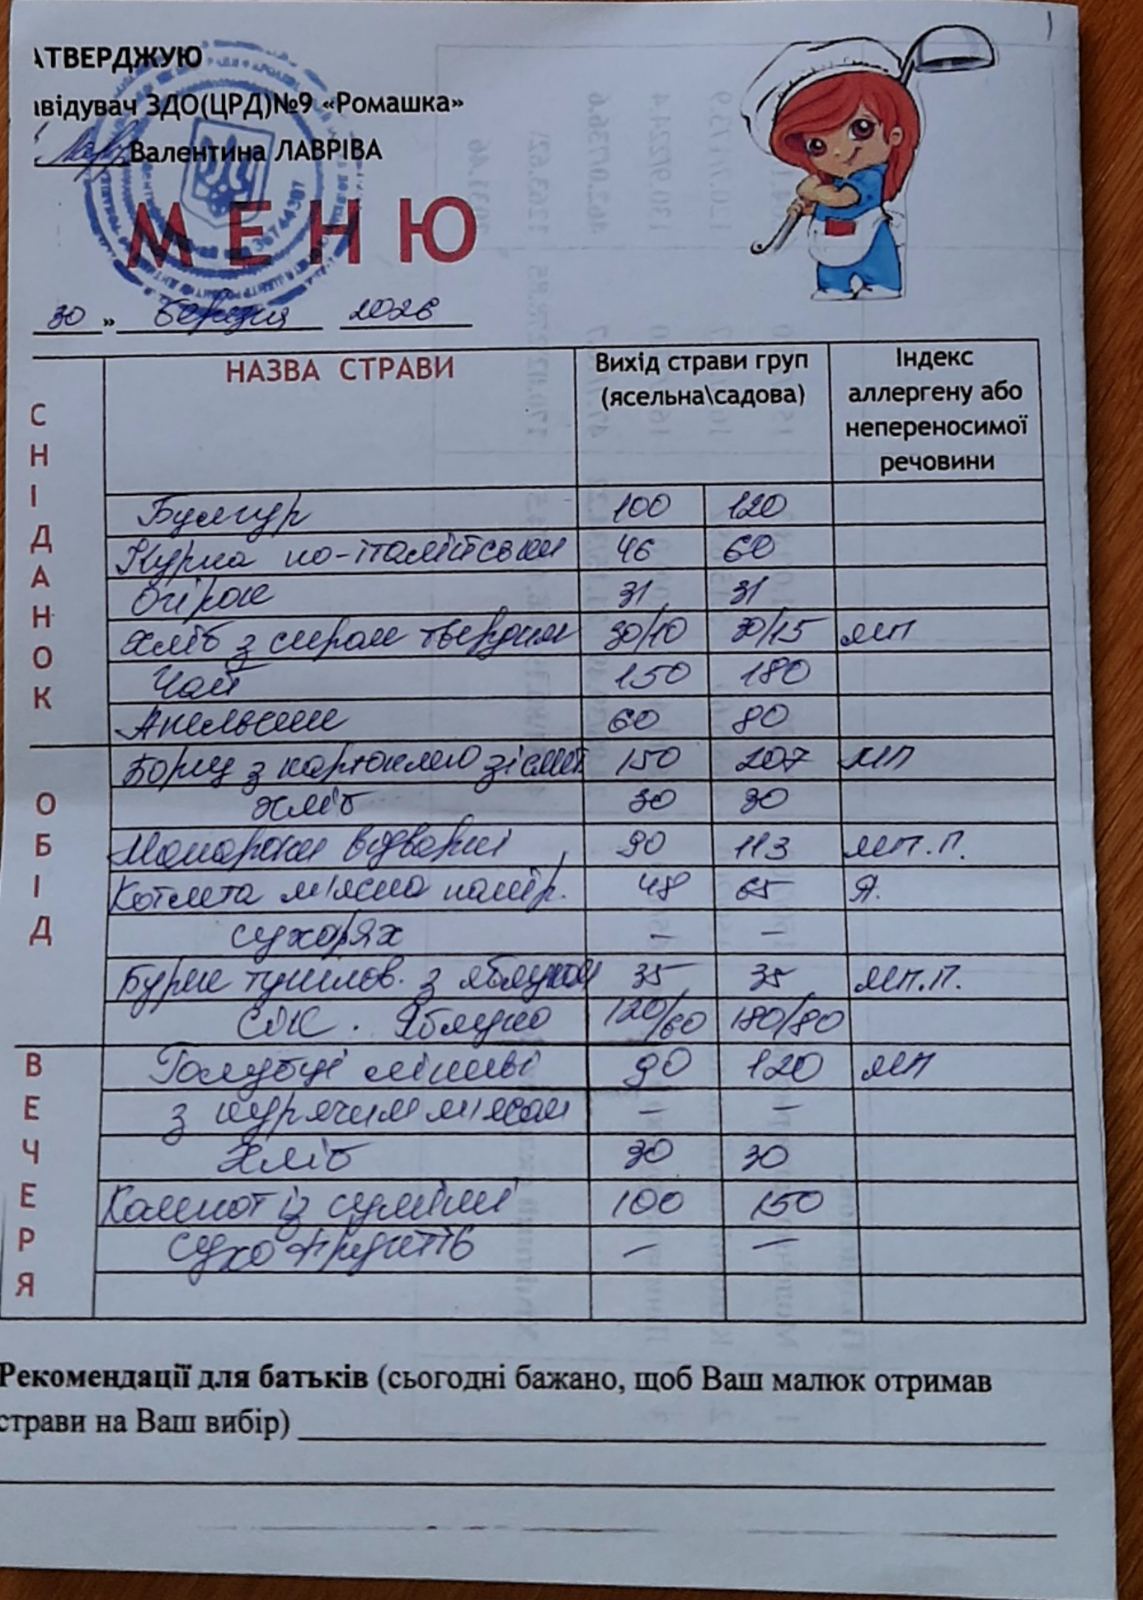 АТВЕРДЖУЮ
авідувач ЗДО(ЦРД)№9 «Ромашка»
Валентина ЛАВРІВА
МЕНЮ
30 » березня 2026
НАЗВА СТРАВИ Вихід страви груп (ясельна\садова) Індекс аллергену або непереносимої речовини
СНІДАНОК
Булгур 100 120
Курка по-італійськи 46 60
Огірок 31 31
Хліб з сиром твердим 30/10 30/15 МП
Чай 150 180
Апельсин 60 80
ОБІД
Борщ з картоплею зі смет 150 207 МП
Хліб 30 30
Макарони відварні 90 113 МП.П.
Котлета м'ясна панір. 48 65 Я.
сухарях – –
Буряк тушков. з яблуком 35 35 МП.П.
Сік. Яблуко 120/60 180/80
ВЕЧЕРЯ
Голубці ліниві 90 120 МП
з курячим м'ясом – –
Хліб 30 30
Компот із суміші 100 150
сухофруктів – –
Рекомендації для батьків (сьогодні бажано, щоб Ваш малюк отримав
страви на Ваш вибір)